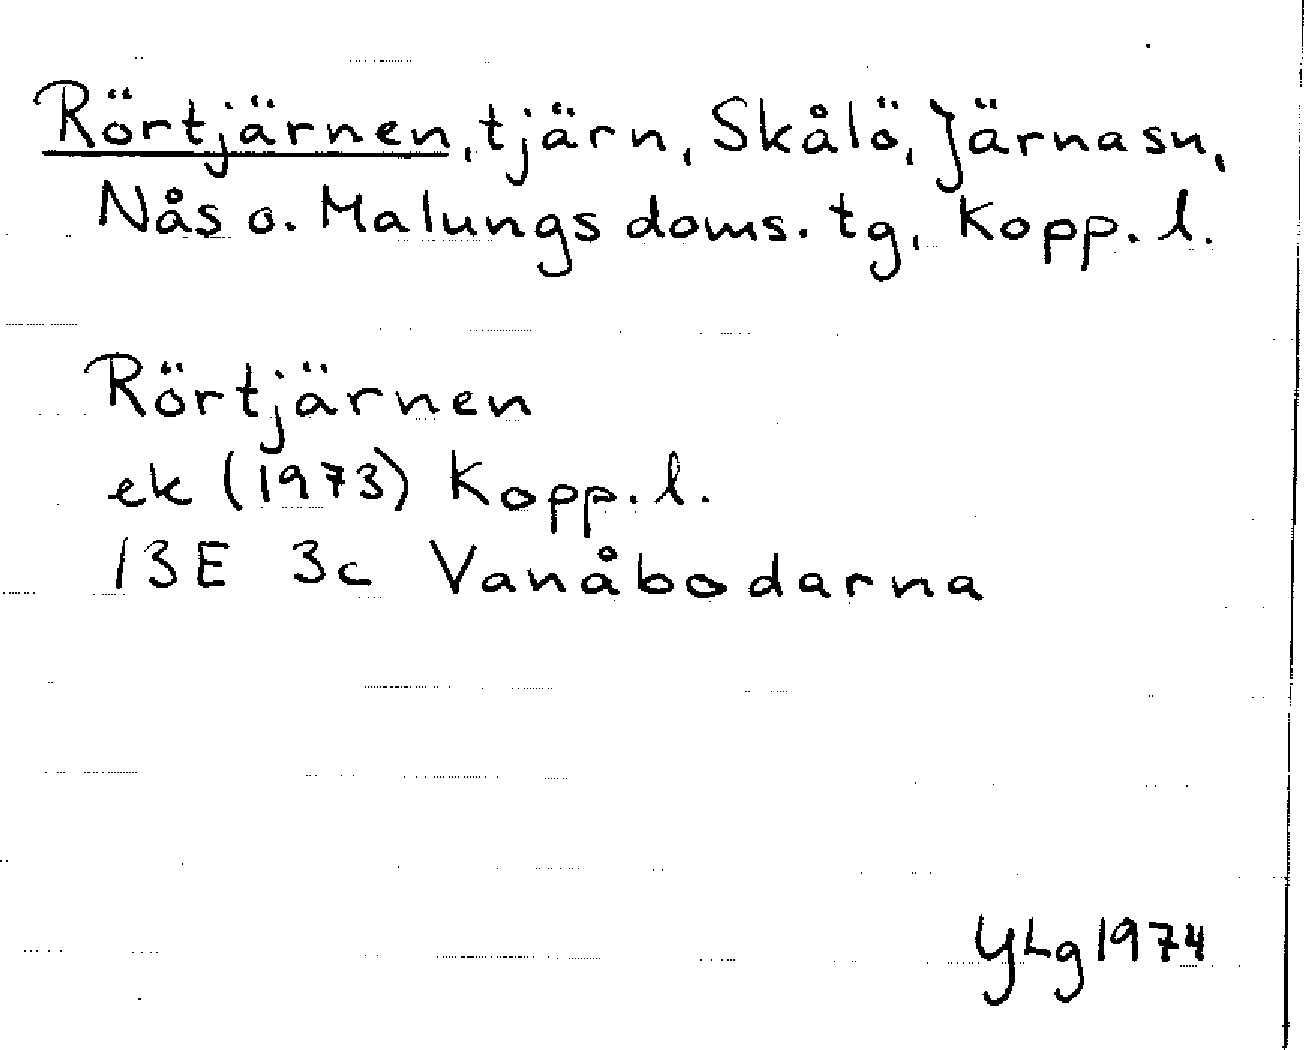 Rörtjärnen, tjärn, Skålö, Järnasn,
Nås o. Malungs doms. tg, Kopp. l.
Rörtjärnen
ek (1973) Kopp. l.
13E 3c Vanåbodarna
YLg 1974